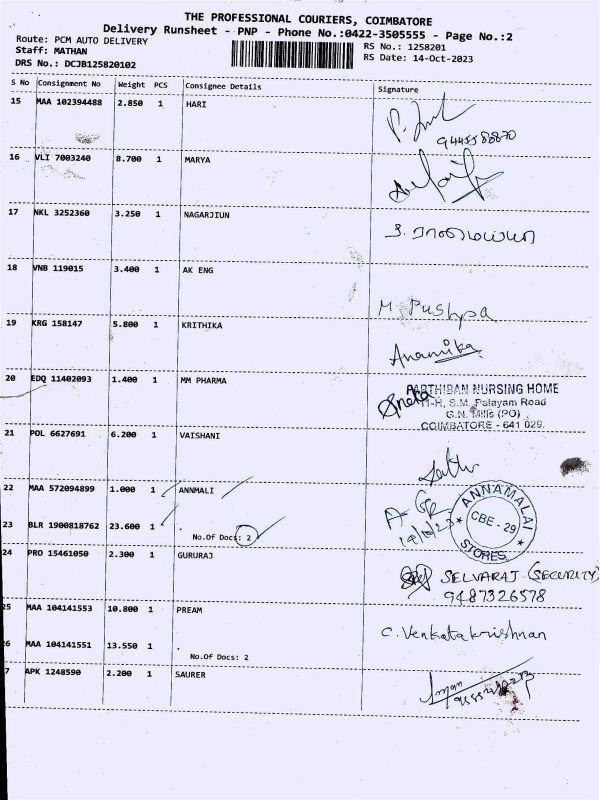 THE PROFESSIONAL COURIERS, COIMBATORE
Delivery Runsheet - PNP - Phone No.:0422-3505555 - Page No.:2
Route: PCM AUTO DELIVERY
RS No.: 1258201
Staff: MATHAN
RS Date: 14-Oct-2023
DRS No.: DCJB125820102
S No Consignment No Weight PCS Consignee Details Signature
15 MAA 102394488 2.850 1 HARI
16 VLI 7003240 8.700 1 MARYA
17 NKL 3252360 3.250 1 NAGARJIUN
18 VNB 119015 3.400 1 AK ENG
M. Pushpa
19 KRG 158147 5.800 1 KRITHIKA
Anamika
20 EDQ 11402093 1.400 1 MM PHARMA
Sneka
PARTHIBAN NURSING HOME
11-H, S.M. Palayam Road
G.N. Mills (PO)
COIMBATORE - 641 029.
21 POL 6627691 6.200 1 VAISHANI
22 MAA 572094899 1.000 1 ANNMALI
23 BLR 1900818762 23.600 1 .
No.Of Docs: 2
14/10/23
ANNAMALAI
CBE - 29
STORES
24 PRO 15461050 2.300 1 GURURAJ
SELVARAJ (SECURITY)
9487326578
25 MAA 104141553 10.800 1 PREAM
C. Venkatakrishnan
6 MAA 104141551 13.550 1 .
No.Of Docs: 2
7 APK 1248590 2.200 1 SAURER